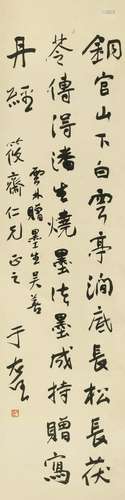 銅官山下白雲亭澗底長松長茯
苓傳得潘生燒墨法墨成持贈寫
丹經
雲外贈墨生吳善
筱齋仁兄正之
于右任